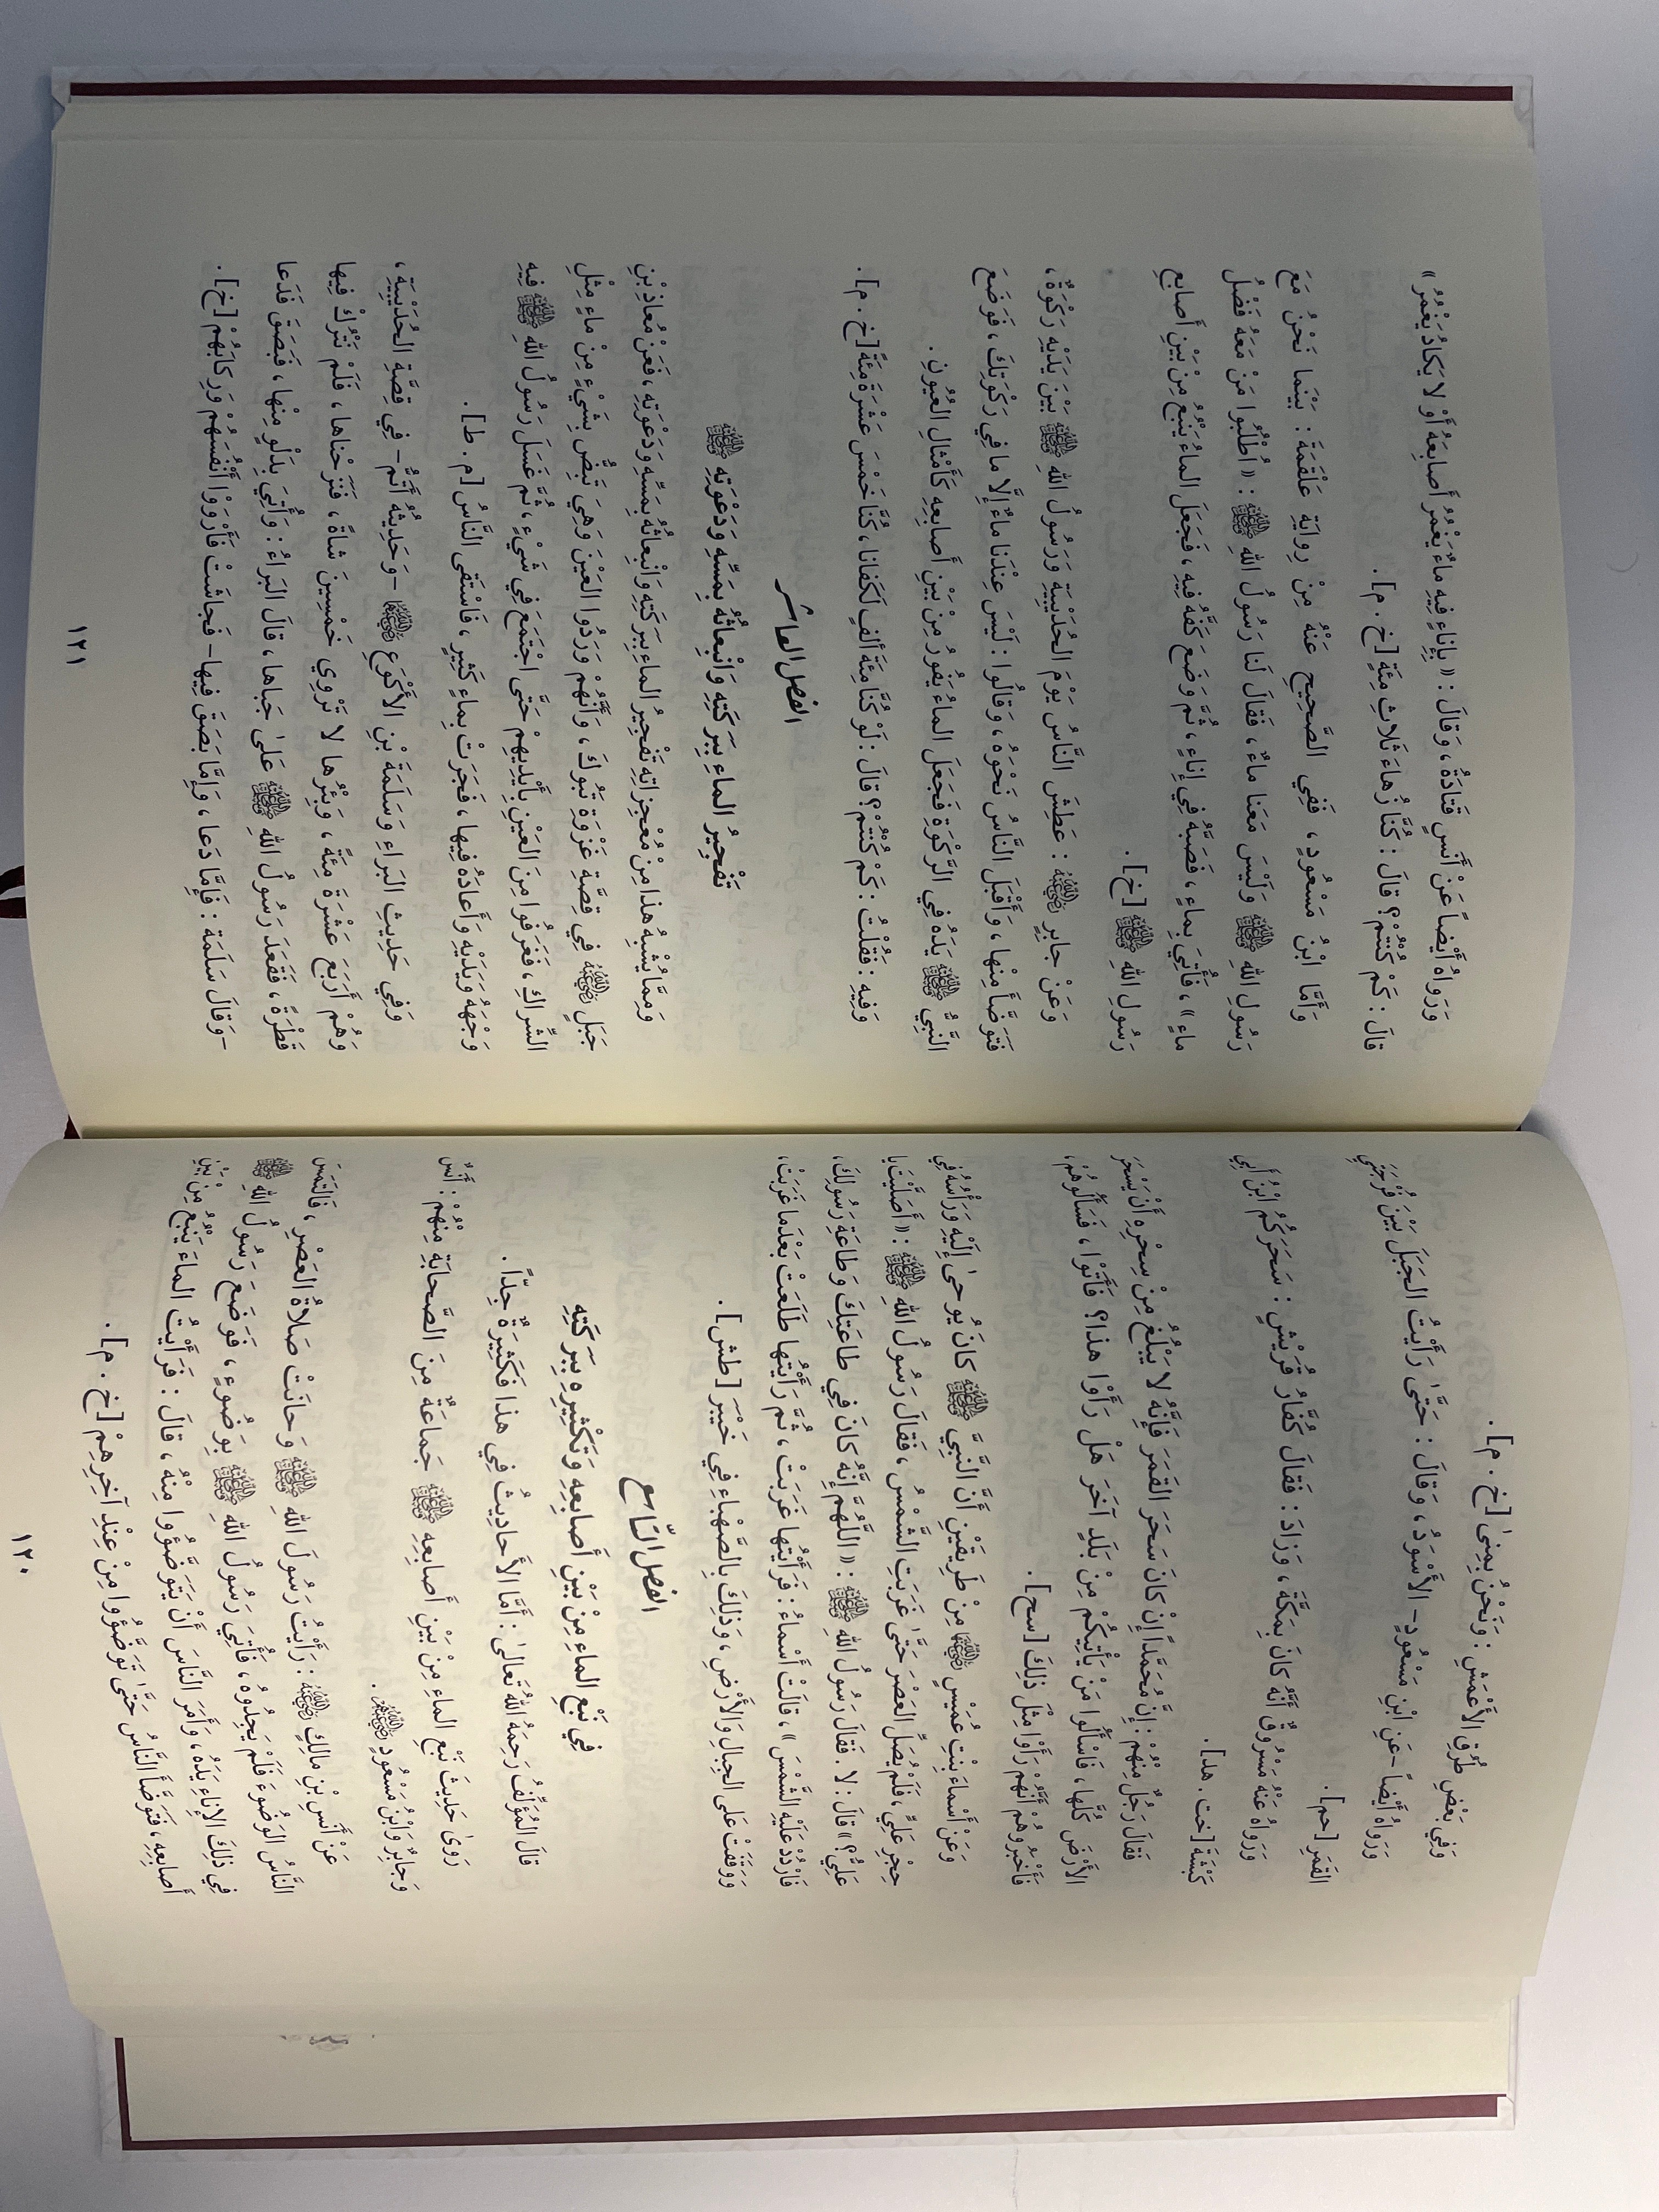 وَفِي بَعْضِ طُرُقِ الأَعْمَشِ : وَنَحْنُ بِمِنىٰ [خ . م] .
وَرَوَاهُ أَيْضاً - عَنِ ابْنِ مَسْعُودٍ - الأَسْوَدُ ، وَقالَ : حَتَّىٰ رَأَيْتُ الجَبَلَ بَيْنَ فُرْجَتَيِ
القَمَرِ [حم] .
وَرَوَاهُ عَنْهُ مَسْرُوقٌ أَنَّهُ كانَ بِمَكَّةَ ، وَزادَ : فَقالَ كُفَّارُ قُرَيْشٍ : سَحَرَكُمُ ابْنُ أَبِي
كَبْشَةَ [خت . هد] .
فَقالَ رَجُلٌ مِنْهُمْ : إِنَّ مُحَمَّداً إِنْ كانَ سَحَرَ القَمَرَ فَإِنَّهُ لا يَبْلُغُ مِنْ سِحْرِهِ أَنْ يَسْحَرَ
الأَرْضَ كُلَّها ، فَاسْأَلُوا مَنْ يَأْتِيكُمْ مِنْ بَلَدٍ آخَرَ هَلْ رَأَوْا هذا؟ فَأَتَوْا ، فَسَأَلُوهُمْ ،
فَأَخْبَرُوهُمْ أَنَّهُمْ رَأَوْا مِثْلَ ذلِكَ [سح] .
وَعَنْ أَسْماءَ بِنْتِ عُمَيْسٍ رضي الله عنها مِنْ طَرِيقَيْنِ أَنَّ النَّبِيَّ ﷺ كانَ يُوحىٰ إِلَيْهِ وَرَأْسُهُ فِي
حِجْرِ عَلِيٍّ ، فَلَمْ يُصَلِّ العَصْرَ حَتَّىٰ غَرَبَتِ الشَّمْسُ ، فَقالَ رَسُولُ اللهِ ﷺ : « أَصَلَّيْتَ يا
عَلِيُّ؟ » قالَ : لا . فَقالَ رَسُولُ اللهِ ﷺ : « اللَّهُمَّ إِنَّهُ كانَ فِي طاعَتِكَ وَطاعَةِ رَسُولِكَ ،
فَارْدُدْ عَلَيْهِ الشَّمْسَ » ، قالَتْ أَسْماءُ : فَرَأَيْتُها غَرَبَتْ ، ثُمَّ رَأَيْتُها طَلَعَتْ بَعْدَما غَرَبَتْ ،
وَوَقَفَتْ عَلَى الجِبالِ وَالأَرْضِ ، وَذلِكَ بِالصَّهْباءِ فِي خَيْبَرَ [طش] .
الفصل التّاسع
فِي نَبْعِ الماءِ مِنْ بَيْنِ أَصابِعِهِ وَتَكْثِيرِهِ بِبَرَكَتِهِ
قالَ المُؤَلِّفُ رَحِمَهُ اللهُ تَعالىٰ : أَمَّا الأَحادِيثُ فِي هذا فَكَثِيرَةٌ جِدّاً .
رَوىٰ حَدِيثَ نَبْعِ الماءِ مِنْ بَيْنِ أَصابِعِهِ ﷺ جَماعَةٌ مِنَ الصَّحابَةِ مِنْهُمْ : أَنَسٌ
وَجابِرٌ وَابْنُ مَسْعُودٍ رضي الله عنهم .
عَنْ أَنَسِ بْنِ مالِكٍ رضي الله عنه : رَأَيْتُ رَسُولَ اللهِ ﷺ وَحانَتْ صَلاةُ العَصْرِ ، فَالْتَمَسَ
النَّاسُ الوَضُوءَ فَلَمْ يَجِدُوهُ ، فَأُتِيَ رَسُولُ اللهِ ﷺ بِوَضُوءٍ ، فَوَضَعَ رَسُولُ اللهِ ﷺ
فِي ذلِكَ الإِناءِ يَدَهُ ، وَأَمَرَ النَّاسَ أَنْ يَتَوَضَّؤُوا مِنْهُ ، قالَ : فَرَأَيْتُ الماءَ يَنْبُعُ مِنْ بَيْنِ
أَصابِعِهِ ، فَتَوَضَّأَ النَّاسُ حَتَّىٰ تَوَضَّؤُوا مِنْ عِنْدِ آخِرِهِمْ [خ . م] .
١٢٠
وَرَواهُ أَيْضاً عَنْ أَنَسٍ قَتادَةُ ، وَقالَ : « بِإِناءٍ فِيهِ ماءٌ يَغْمُرُ أَصابِعَهُ أَوْ لا يَكادُ يَغْمُرُ »
قالَ : كَمْ كُنْتُمْ؟ قالَ : كُنَّا زُهاءَ ثَلاثِ مِئَةٍ [خ . م] .
وَأَمَّا ابْنُ مَسْعُودٍ ، فَفِي الصَّحِيحِ عَنْهُ مِنْ رِوايَةِ عَلْقَمَةَ : بَيْنَما نَحْنُ مَعَ
رَسُولِ اللهِ ﷺ وَلَيْسَ مَعَنا ماءٌ ، فَقالَ لَنا رَسُولُ اللهِ ﷺ : « اُطْلُبُوا مَنْ مَعَهُ فَضْلُ
ماءٍ » ، فَأُتِيَ بِماءٍ ، فَصَبَّهُ فِي إِناءٍ ، ثُمَّ وَضَعَ كَفَّهُ فِيهِ ، فَجَعَلَ الماءُ يَنْبُعُ مِنْ بَيْنِ أَصابِعِ
رَسُولِ اللهِ ﷺ [خ] .
وَعَنْ جابِرٍ رضي الله عنه : عَطِشَ النَّاسُ يَوْمَ الحُدَيْبِيَةِ وَرَسُولُ اللهِ ﷺ بَيْنَ يَدَيْهِ رَكْوَةٌ ،
فَتَوَضَّأَ مِنْها ، وَأَقْبَلَ النَّاسُ نَحْوَهُ ، وَقالُوا : لَيْسَ عِنْدَنا ماءٌ إِلَّا ما فِي رَكْوَتِكَ ، فَوَضَعَ
النَّبِيُّ ﷺ يَدَهُ فِي الرَّكْوَةِ فَجَعَلَ الماءُ يَفُورُ مِنْ بَيْنِ أَصابِعِهِ كَأَمْثالِ العُيُونِ .
وَفِيهِ : فَقُلْتُ : كَمْ كُنْتُمْ؟ قالَ : لَوْ كُنَّا مِئَةَ أَلْفٍ لَكَفانا ، كُنَّا خَمْسَ عَشْرَةَ مِئَةً [خ . م] .
الفصل العاشر
تَفْجِيرُ الماءِ بِبَرَكَتِهِ وَانْبِعاثُهُ بِمَسِّهِ وَدَعْوَتِهِ ﷺ
وَمِمَّا يُشْبِهُ هذا مِنْ مُعْجِزاتِهِ تَفْجِيرُ الماءِ بِبَرَكَتِهِ وَانْبِعاثُهُ بِمَسِّهِ وَدَعْوَتِهِ ، فَعَنْ مُعاذِ بْنِ
جَبَلٍ رضي الله عنه فِي قِصَّةِ غَزْوَةِ تَبُوكَ ، وَأَنَّهُمْ وَرَدُوا العَيْنَ وَهِيَ تَبِضُّ بِشَيْءٍ مِنْ ماءٍ مِثْلِ
الشِّراكِ ، فَغَرَفُوا مِنَ العَيْنِ بِأَيْدِيهِمْ حَتَّى اجْتَمَعَ فِي شَيْءٍ ، ثُمَّ غَسَلَ رَسُولُ اللهِ ﷺ فِيهِ
وَجْهَهُ وَيَدَيْهِ وَأَعادَهُ فِيها ، فَجَرَتْ بِماءٍ كَثِيرٍ ، فَاسْتَقَى النَّاسُ [م . ط] .
وَفِي حَدِيثِ البَراءِ وَسَلَمَةَ بْنِ الأَكْوَعِ رضي الله عنهما - وَحَدِيثُهُ أَتَمُّ - فِي قِصَّةِ الحُدَيْبِيَةِ ،
وَهُمْ أَرْبَعَ عَشْرَةَ مِئَةً ، وَبِئْرُها لا تَرْوِي خَمْسِينَ شاةً ، فَنَزَحْناها ، فَلَمْ نَتْرُكْ فِيها
قَطْرَةً ، فَقَعَدَ رَسُولُ اللهِ ﷺ عَلَىٰ جَباها ، قالَ البَراءُ : وَأُتِيَ بِدَلْوٍ مِنْها ، فَبَصَقَ فَدَعا
- وَقالَ سَلَمَة : فَإِمَّا دَعا ، وَإِمَّا بَصَقَ فِيها - فَجاشَتْ فَأَرْوَوْا أَنْفُسَهُمْ وَرِكابَهُمْ [خ] .
١٢١